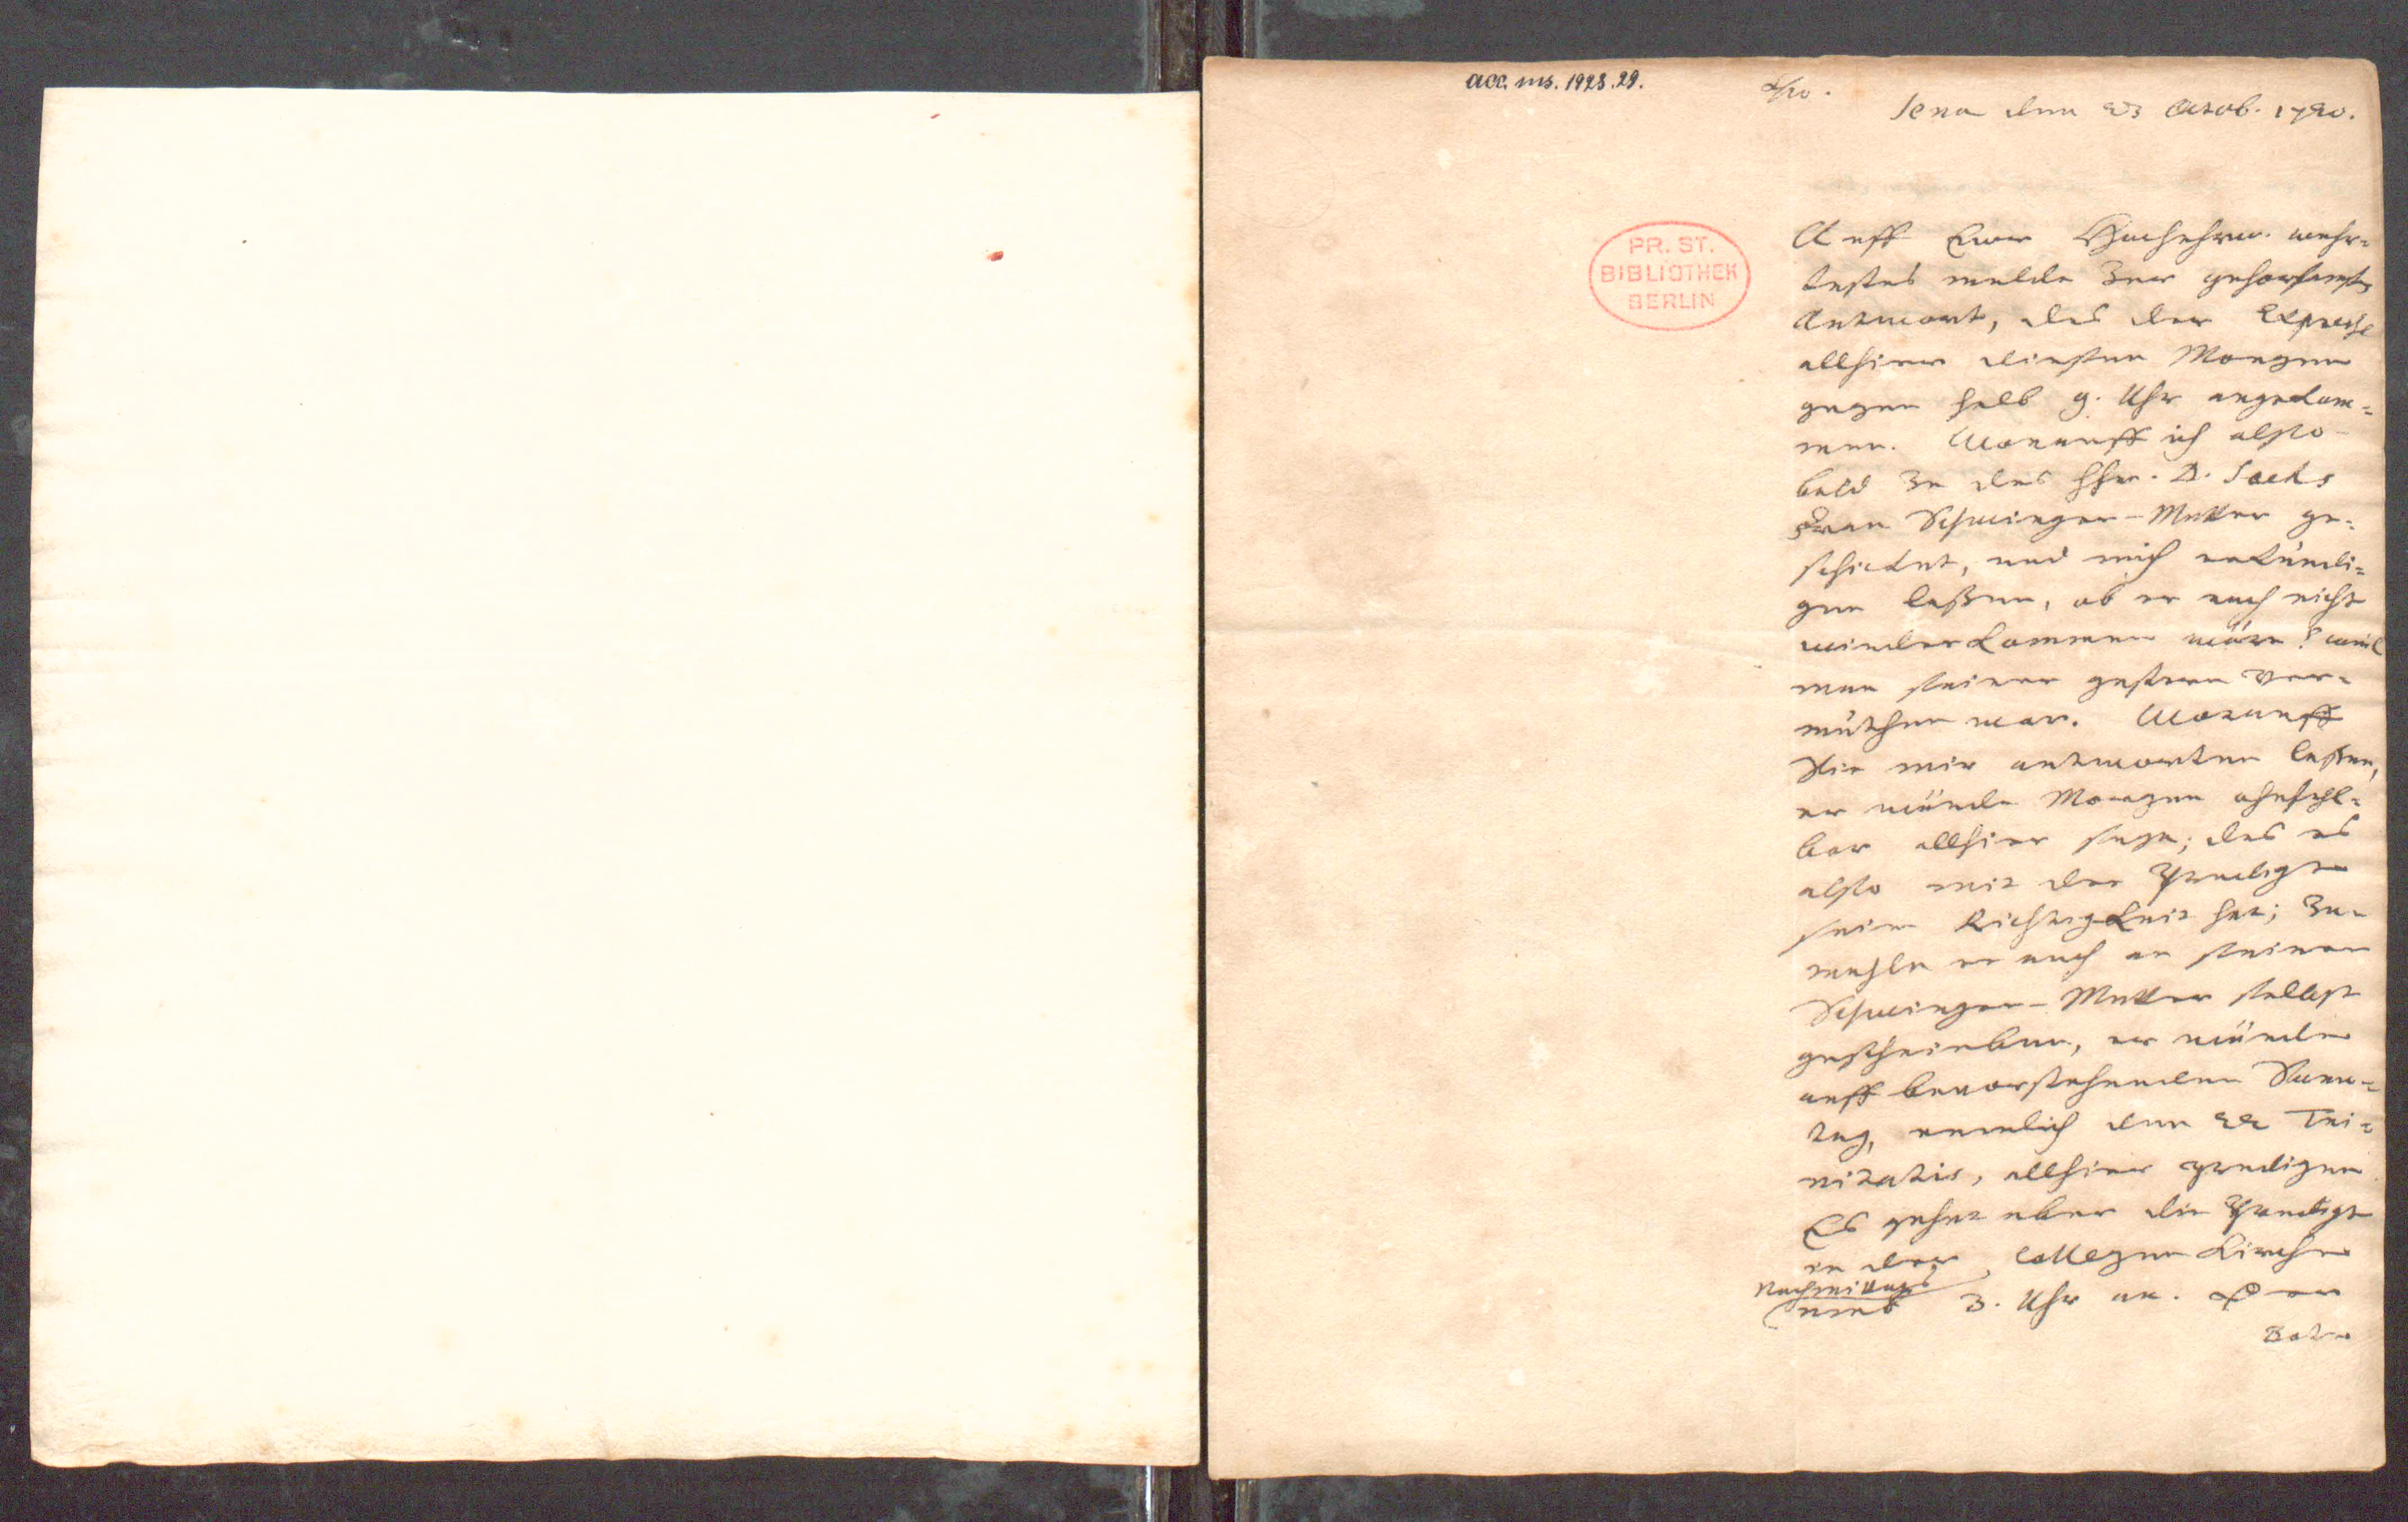 acc. ms. 1928.29.
Jena den 23 Octob. 1720.
PR. ST.
BIBLIOTHEK
BERLIN
Auff Euer Hochehrw. wehr-
testes melde zur gehorsamst
Antwort, das der Expresse
allhier diesen Morgen
gegen halb 9. Uhr angekom-
men. Worauff ich also-
bald zu des Hhr. D.
Frau Schwieger-Mutter ge-
schicket, und mich erkundi-
gen laßen, ob er noch nicht
wiederkommen wäre? weil
man seiner gestern ver-
muthen war. Worauff
Sie mir antworten laßen,
er würde Morgen ohnfehl-
bar allhier seyn; das es
also mit der Predigt
seine Richtigkeit hat; zu-
mahle er auch an seiner
Schwieger-Mutter selbst
geschrieben, er würde
auff bevorstehenden Sonn-
tag, nemlich den 22 Tri-
nitatis, allhier predigen.
Es gehet aber die Predigt
in der Collegen Kirche
Nachmittags
umb 3. Uhr an. Der
Bote